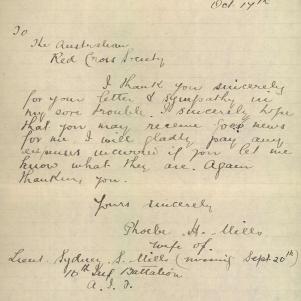 Oct 19th
To
The Australian
Red Cross Society
I thank you sincerely
for your letter & sympathy in
my sore trouble. I sincerely hope
that you may receive good news
for me I will gladly pay any
expenses incurred if you let me
know what they are. Again
thanking you.
Yours sincerely
Phoebe H. Mills
Wife of.
Lieut. Sydney S. Mills (missing Sept 20th)
10th Inf Battalion
A. I. F.